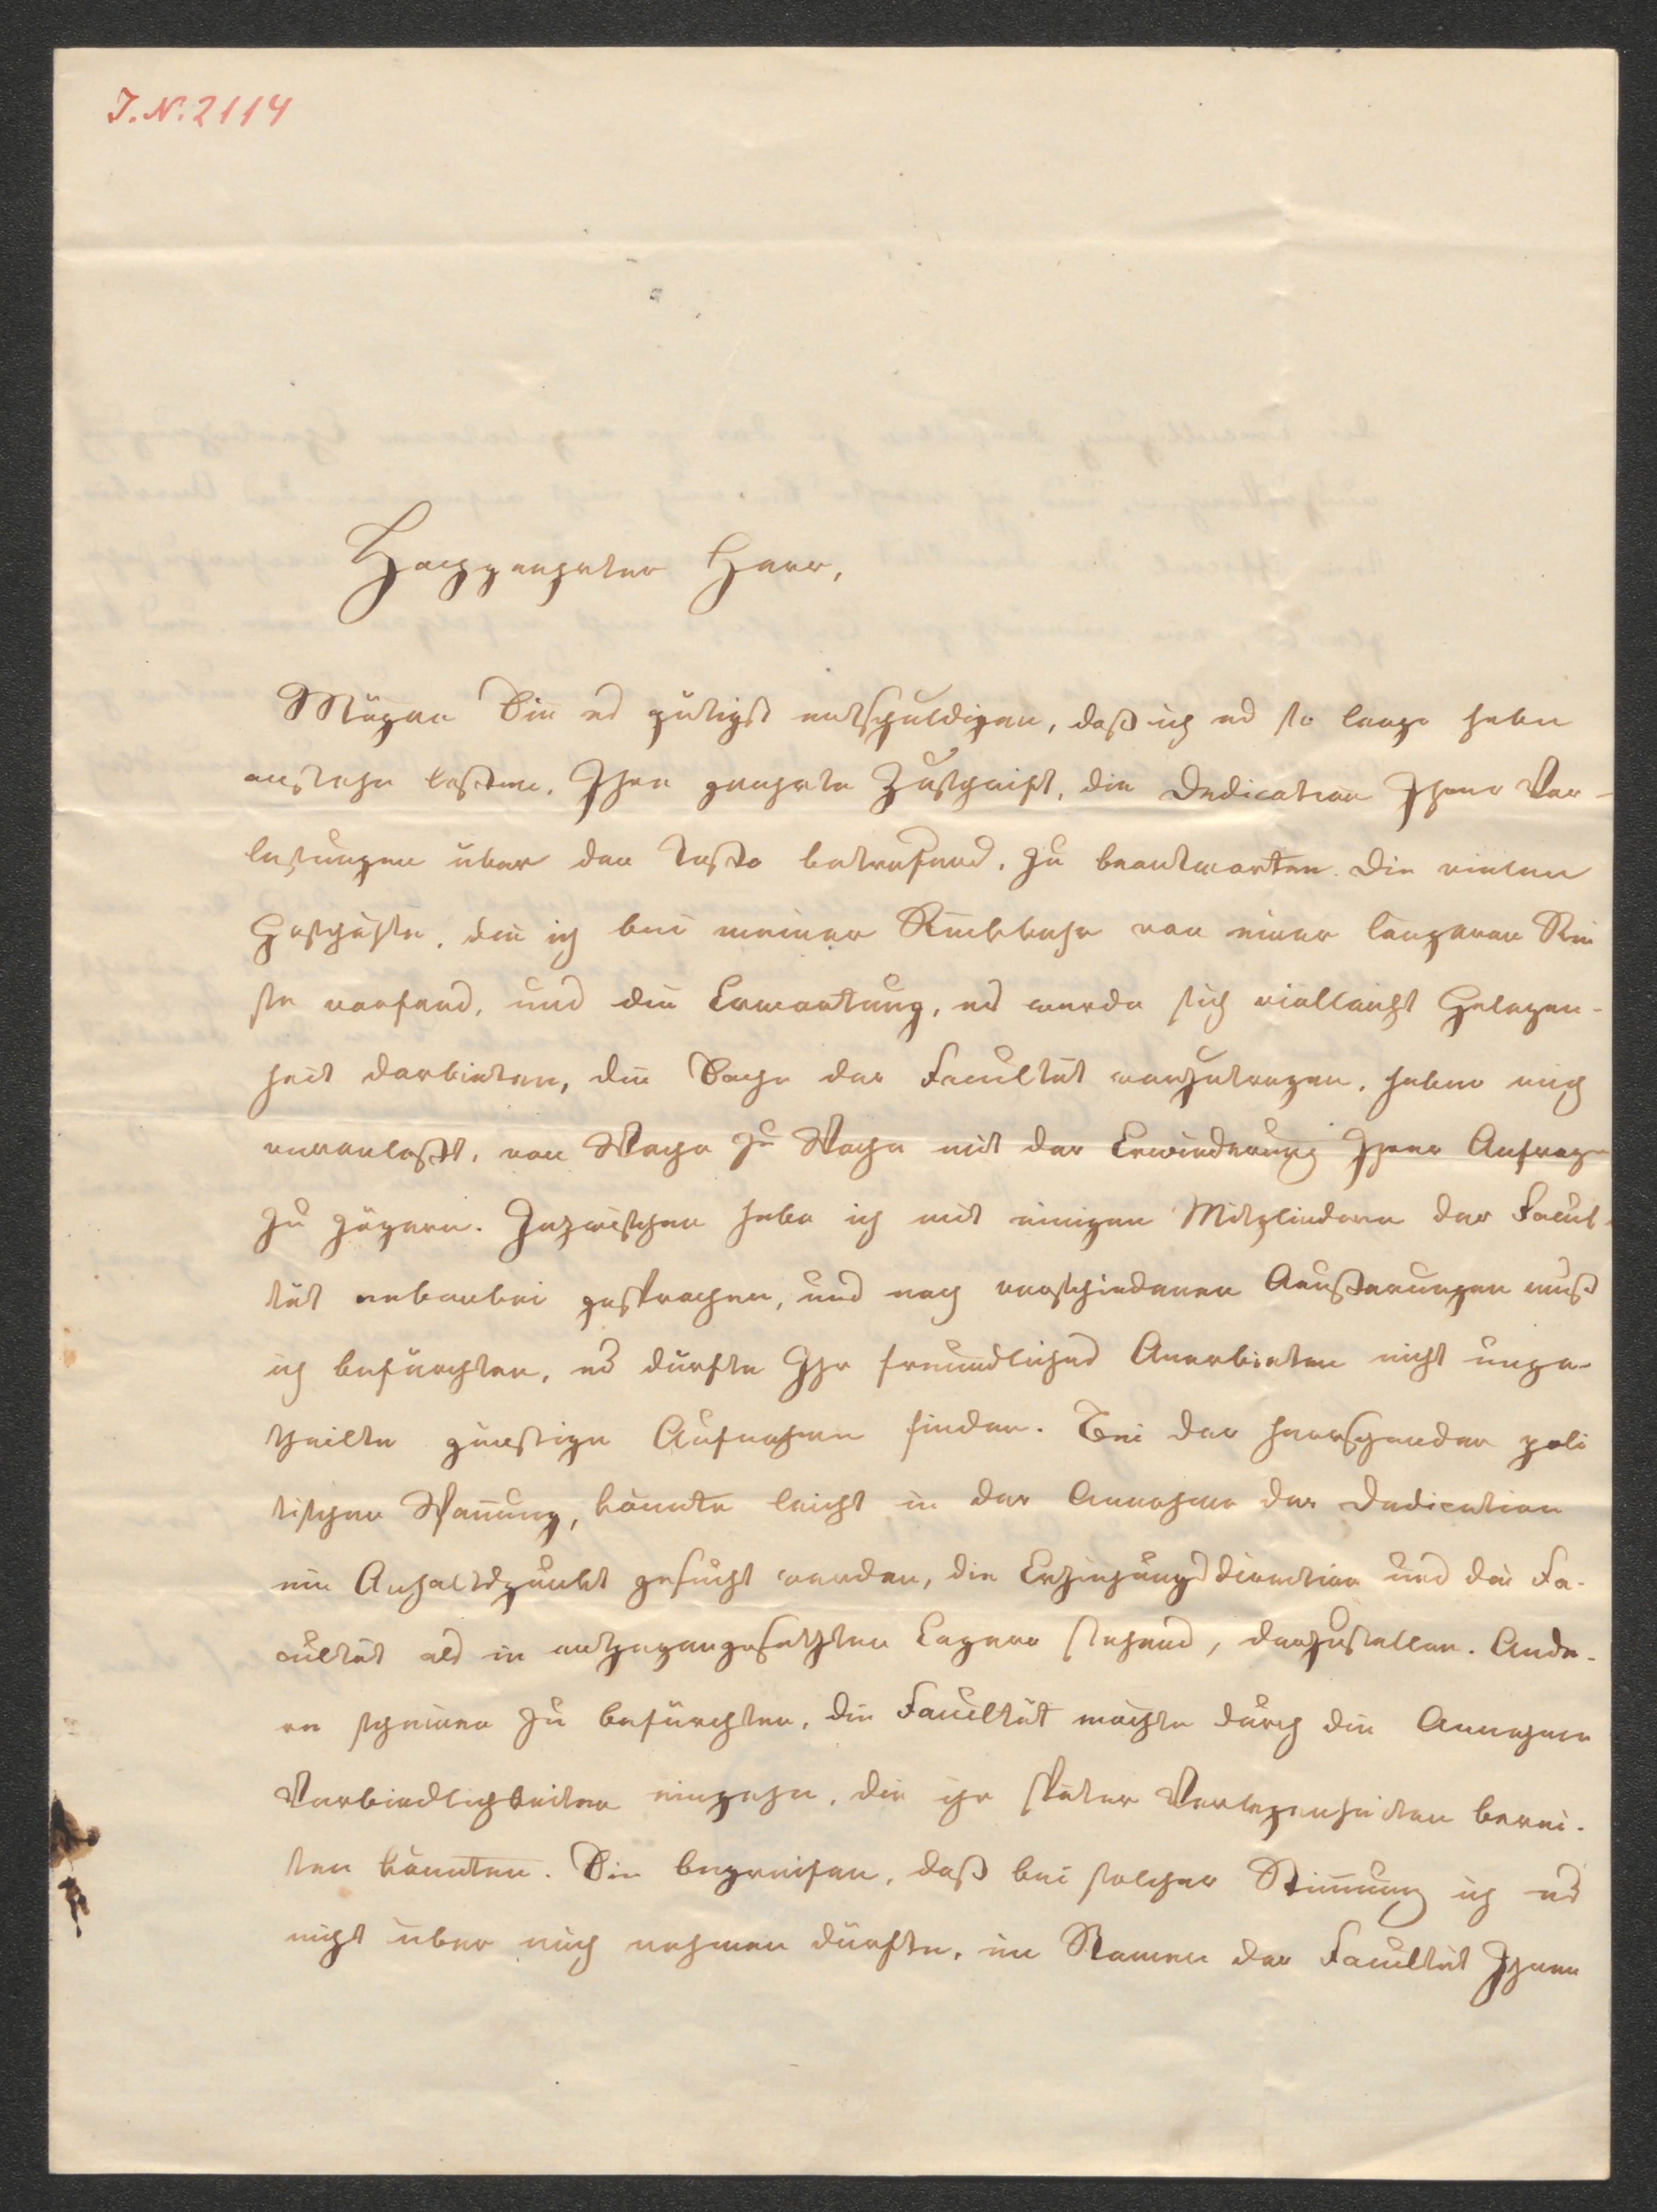 J. N. 2114
Hochgeehrter Herr,
Mögen Sie es gütigst entschuldigen, daß ich es so lange habe
anstehn lassen, Ihre geehrte Zuschrift, die Dedication Ihrer Vor-
lesungen über den Tasso betrefend, zu beantworten. Die vielen
Geschäfte, die ich bei meiner Rückkehr von einer längeren Rei
se vorfand, und die Erwartung, es werde sich vielleicht Gelegen-
heit darbieten, die Sache der Facultät vorzutragen, haben mich
veranlaßt, von Woche zu Woche mit der Erwiederung Ihrer Anfrage
zu zögern. Inzwischen habe ich mit einigen Mitgliedern der Facul-
tät nebenbei gesprochen, und nach verschiedenen Aeußerungen muß
ich befürchten, es dürfte Ihr freundliches Anerbieten nicht unge-
theilte günstige Aufnahme finden. Bei der herrschenden poli
tischen Spannung, könnte leicht in der Annahme der Dedication
ein Anhaltspunkt gesucht werden, die Erziehungsdirection und die Fa-
cultät als in entgegengesetzten Lagern stehend, darzustellen. Ande-
re scheinen zu befürchten, die Facultät möchte durch die Annahme
Verbindlichkeiten eingehn, die ihr später Verlegenheiten berei-
ten könnten. Sie begreifen, daß bei solcher Stimmung ich es
nicht über mich nehmen dürfte, im Namen der Facultät Ihnen